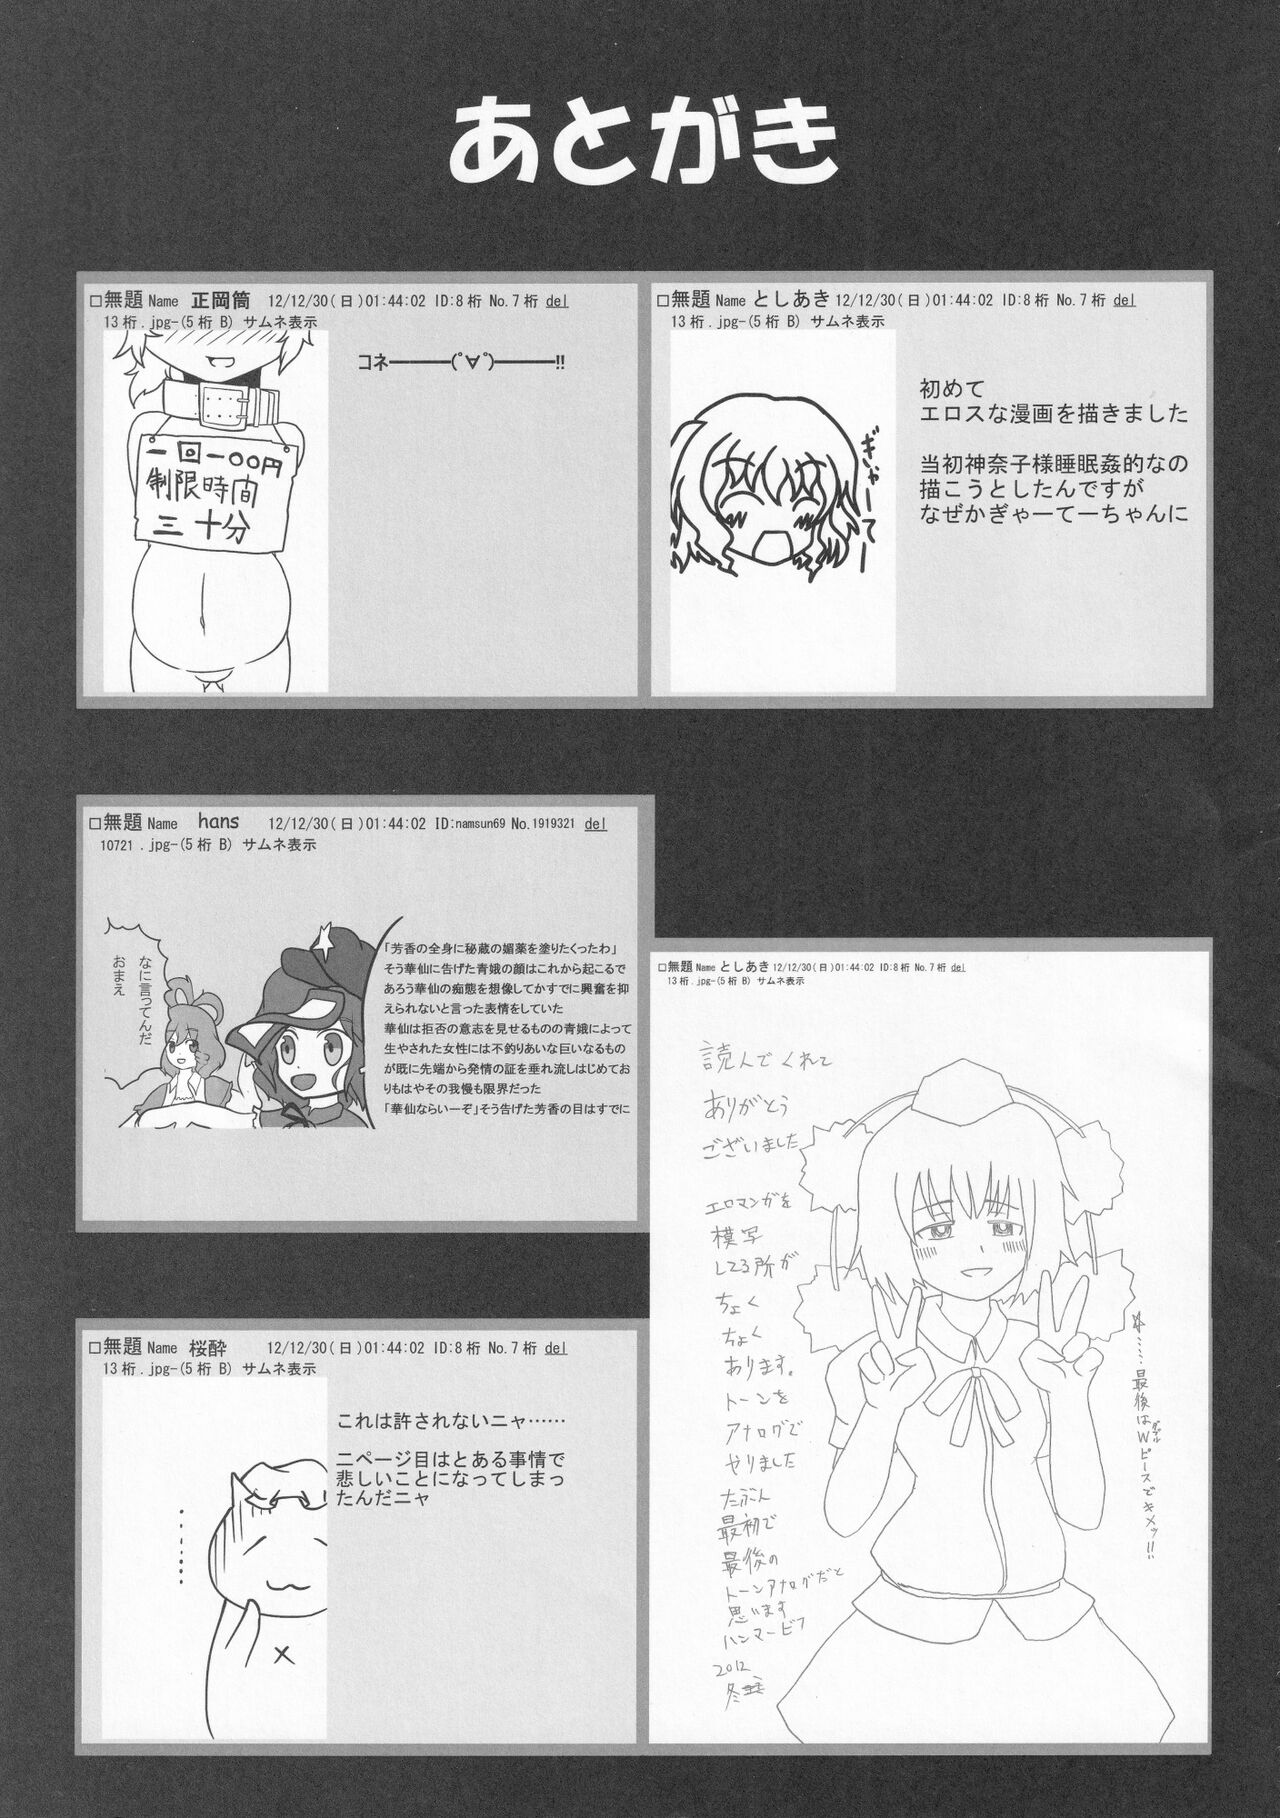 あとがき
□無題 Name 正岡筒 12/12/30(日)01:44:02 ID:8桁 No.7桁 del
13桁.jpg-(5桁 B) サムネ表示
コネ━━━━(ﾟ∀ﾟ)━━━━!!
一回一〇〇円
制限時間
三十分
□無題 Name としあき 12/12/30(日)01:44:02 ID:8桁 No.7桁 del
13桁.jpg-(5桁 B) サムネ表示
ぎゃーてー
初めて
エロスな漫画を描きました
当初神奈子様睡眠姦的なの
描こうとしたんですが
なぜかぎゃーてーちゃんに
□無題 Name hans 12/12/30(日)01:44:02 ID:namsun69 No.1919321 del
10721 .jpg-(5桁 B) サムネ表示
「芳香の全身に秘蔵の媚薬を塗りたくったわ」
そう華仙に告げた青娥の顔はこれから起こるで
あろう華仙の痴態を想像してかすでに興奮を抑
えられないと言った表情をしていた
華仙は拒否の意志を見せるものの青娥によって
生やされた女性には不釣りあいな巨いなるもの
が既に先端から発情の証を垂れ流しはじめてお
りもはやその我慢も限界だった
「華仙ならいーぞ」そう告げた芳香の目はすでに
なに言ってんだ
おまえ
□無題 Name としあき 12/12/30(日)01:44:02 ID:8桁 No.7桁 del
13桁.jpg-(5桁 B) サムネ表示
読んでくれて
ありがとう
ございました
エロマンガを
模写
してる所が
ちょく
ちょく
あります。
トーンを
アナログで
やりました
たぶん
最初で
最後の
トーンアナログだと
思います
ハンマービフ
2012
冬
……最後はWピースでキメッ!!
ダブル
□無題 Name 桜酔 12/12/30(日)01:44:02 ID:8桁 No.7桁 del
13桁.jpg-(5桁 B) サムネ表示
これは許されないニャ……
二ページ目はとある事情で
悲しいことになってしまっ
たんだニャ
……